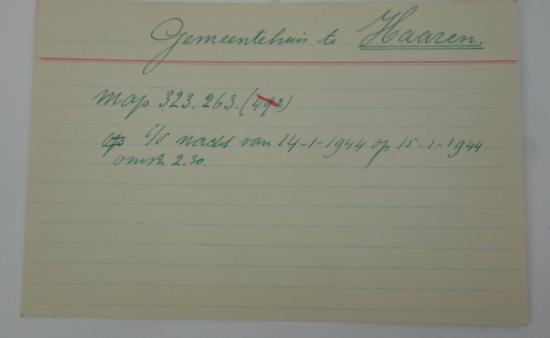 Gemeentehuis te Haaren.
map 323.263. (492)
op i/d nacht van 14-1-1944 op 15-1-1944
omstr 2.30.